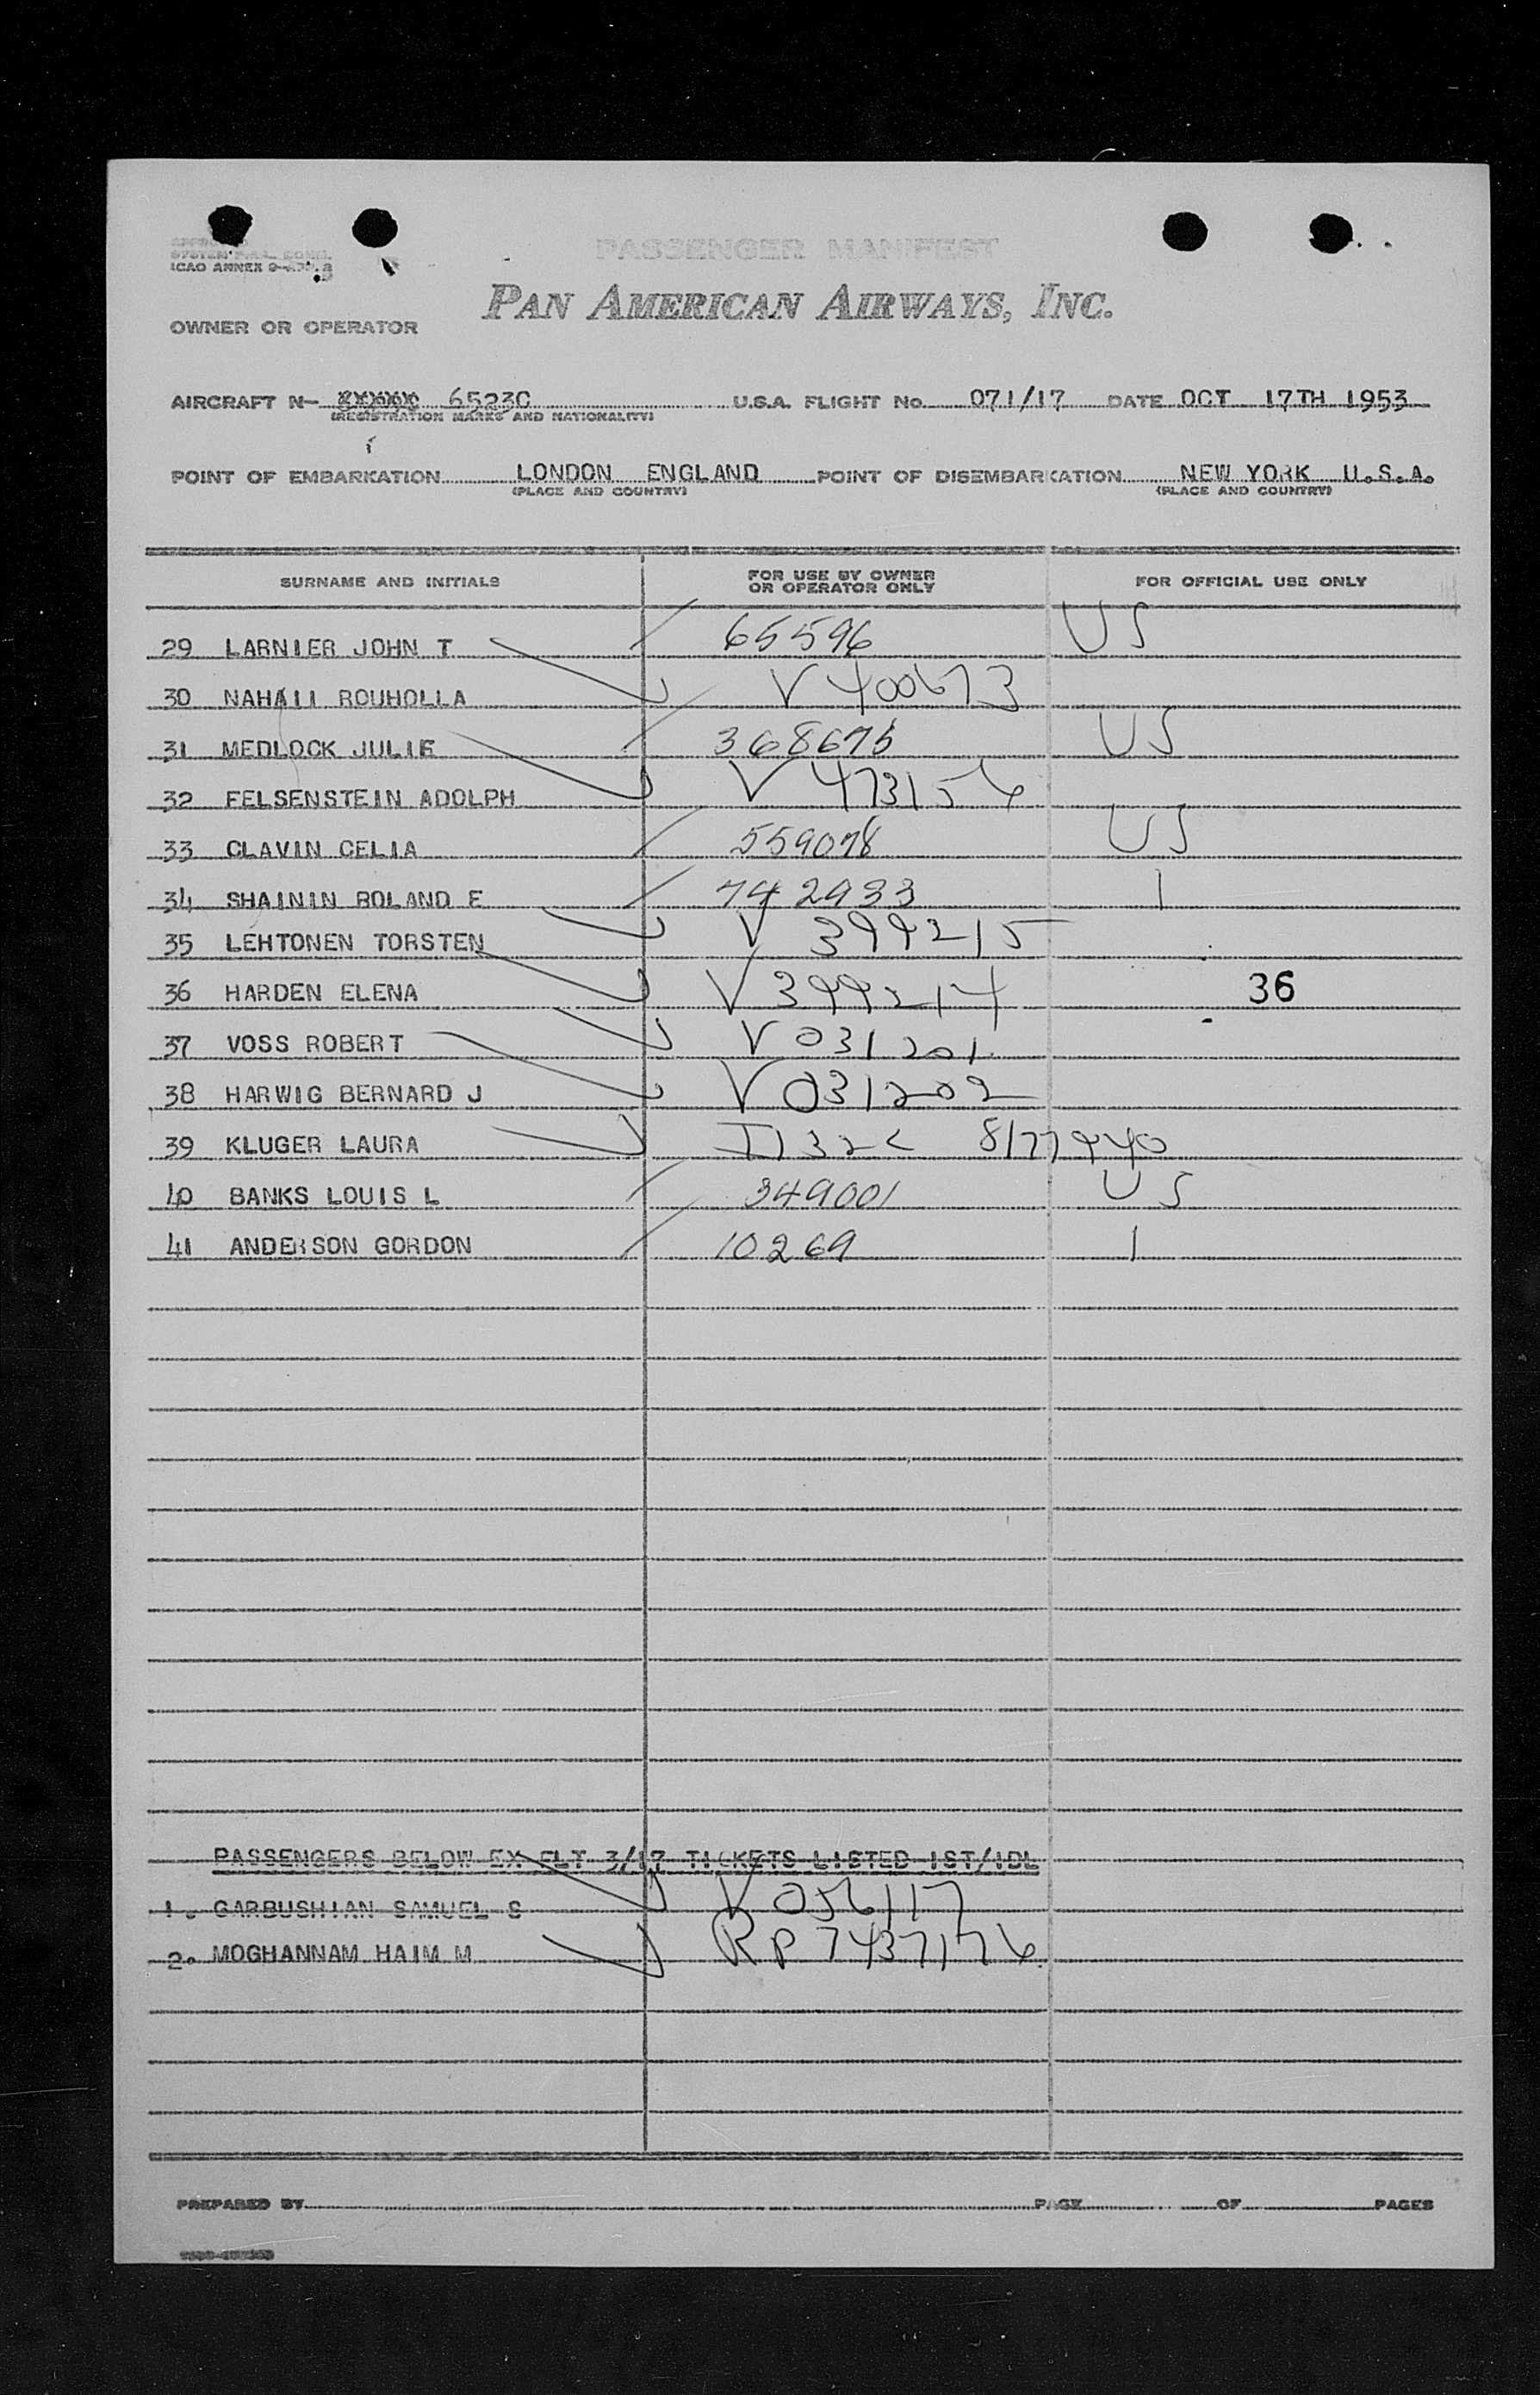 PASSENGER MANIFEST
ICAO ANNEX 9
PAN AMERICAN AIRWAYS, INC.
OWNER OR OPERATOR
AIRCRAFT N- 65230 U.S.A. FLIGHT No. 071/17 DATE OCT 17TH 1953
(REGISTRATION MARKS AND NATIONALITY)
POINT OF EMBARKATION LONDON ENGLAND POINT OF DISEMBARKATION NEW YORK U.S.A.
(PLACE AND COUNTRY) (PLACE AND COUNTRY)
SURNAME AND INITIALS FOR USE BY OWNER OR OPERATOR ONLY FOR OFFICIAL USE ONLY
29 LARNIER JOHN T 65596 US
30 NAHAII ROUHOLLA V 400673
31 MEDLOCK JULIE 368675 US
32 FELSENSTEIN ADOLPH V 473156
33 CLAVIN CELIA 559078 US
34 SHAININ ROLAND E 742933 1
35 LEHTONEN TORSTEN V 399215
36 HARDEN ELENA V 399214 36
37 VOSS ROBERT V 031201
38 HARWIG BERNARD J V 031202
39 KLUGER LAURA 8177940
40 BANKS LOUIS L 349001 US
41 ANDERSON GORDON 10269 1
PASSENGERS BELOW EX FLT 3/17 TICKETS LISTED IST/IDL
1. GARBUSHIAN SAMUEL S V 056117
2. MOGHANNAM HAIM M RP 7437176
PREPARED BY PAGE OF PAGES